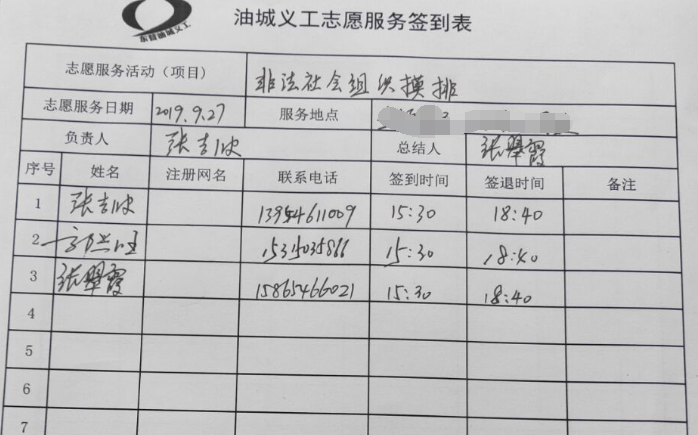 东营油城义工
油城义工志愿服务签到表
志愿服务活动（项目） 非法社会组织摸排
志愿服务日期 2019.9.27 服务地点
负责人 张吉波 总结人 张翠霞
序号 姓名 注册网名 联系电话 签到时间 签退时间 备注
1 张吉波 13954611009 15:30 18:40
2 15:30 18:40
3 张翠霞 15865466021 15:30 18:40
4
5
6
7